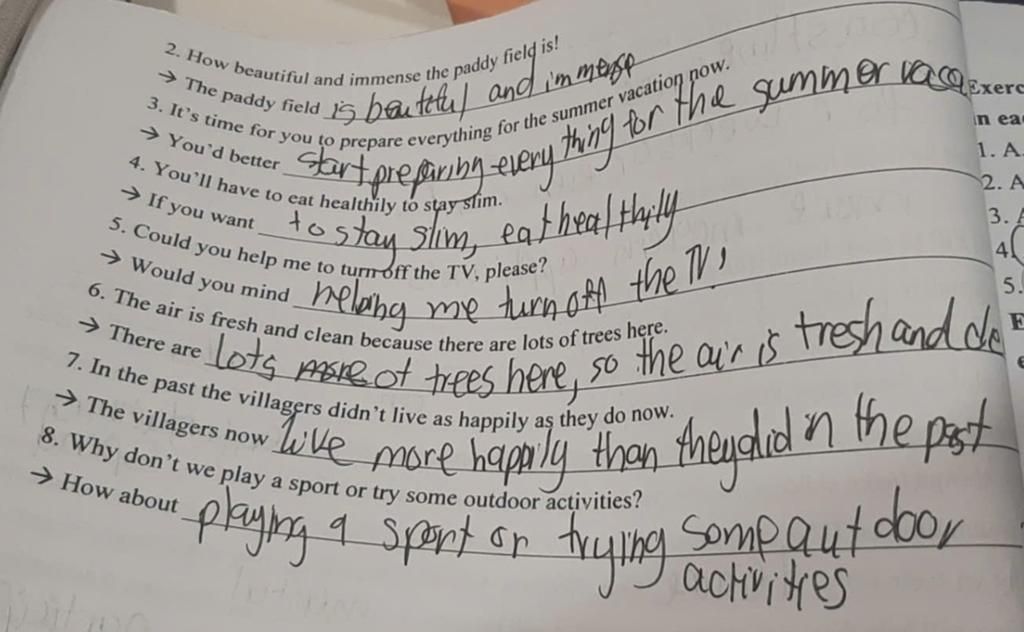 2. How beautiful and immense the paddy field is!
→ The paddy field is beautiful and immense
3. It's time for you to prepare everything for the summer vacation now.
→ You'd better start preparing everything for the summer vaca
4. You'll have to eat healthily to stay slim.
→ If you want to stay slim, eat healthily
5. Could you help me to turn off the TV, please?
→ Would you mind helping me turn off the TV?
6. The air is fresh and clean because there are lots of trees here.
→ There are lots of trees here, so the air is fresh and cle
7. In the past the villagers didn't live as happily as they do now.
→ The villagers now live more happily than they did in the past
8. Why don't we play a sport or try some outdoor activities?
→ How about playing a sport or trying some out door
activities
Exerc
in ea
1. A.
2. A
3. A
4.
5.
E